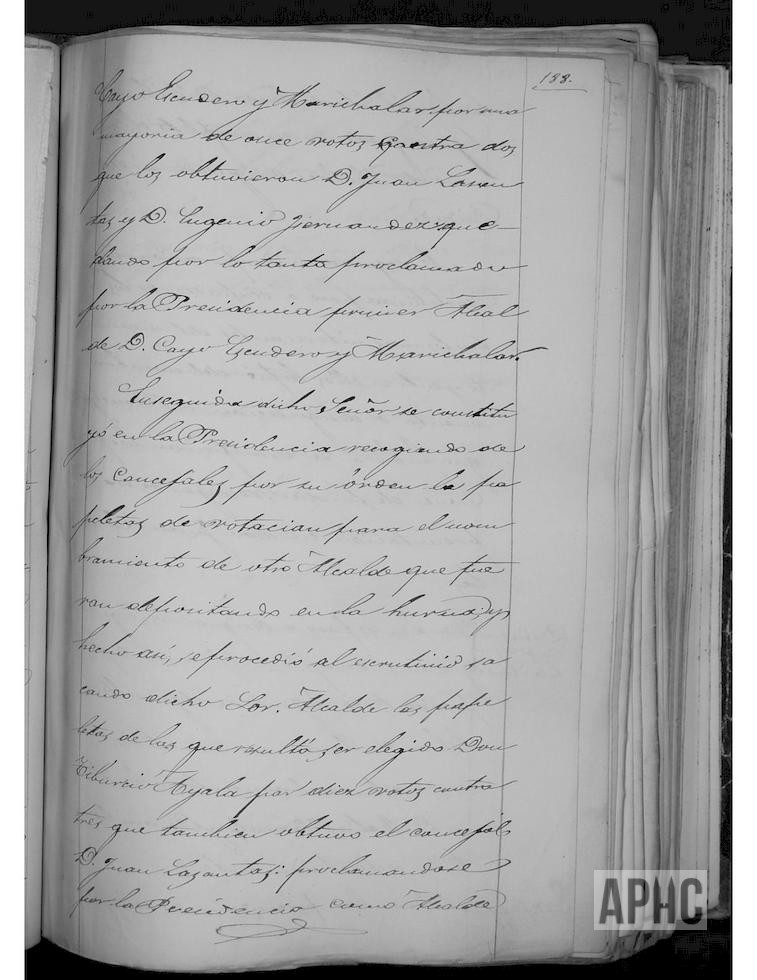 188.
Cayo Escudero y Marichalar por una
mayoria de once votos contra dos
que los obtuvieron D. Juan
tas y D. Eugenio Hernandez; que-
dando por lo tanto proclamado
por la Presidencia primer Alcal
de D. Cayo Escudero y Marichalar.
Enseguida dicho Señor se constitu
yó en la Presidencia recogiendo de
los Concejales por su órden la pa
peletas de votacion para el nom
bramiento de otro Alcalde que fue
ron depositando en la hurna; y
hecho asi, se procedió al escrutinio sa
cando dicho Sor. Alcalde las pape
letas de las que resultó ser elegido Don
Tiburcio Ayala por diez votos contra
tres que tambien obtuvo el concejal
D. Juan proclamandose
por la Presidencia como Alcalde
APHC